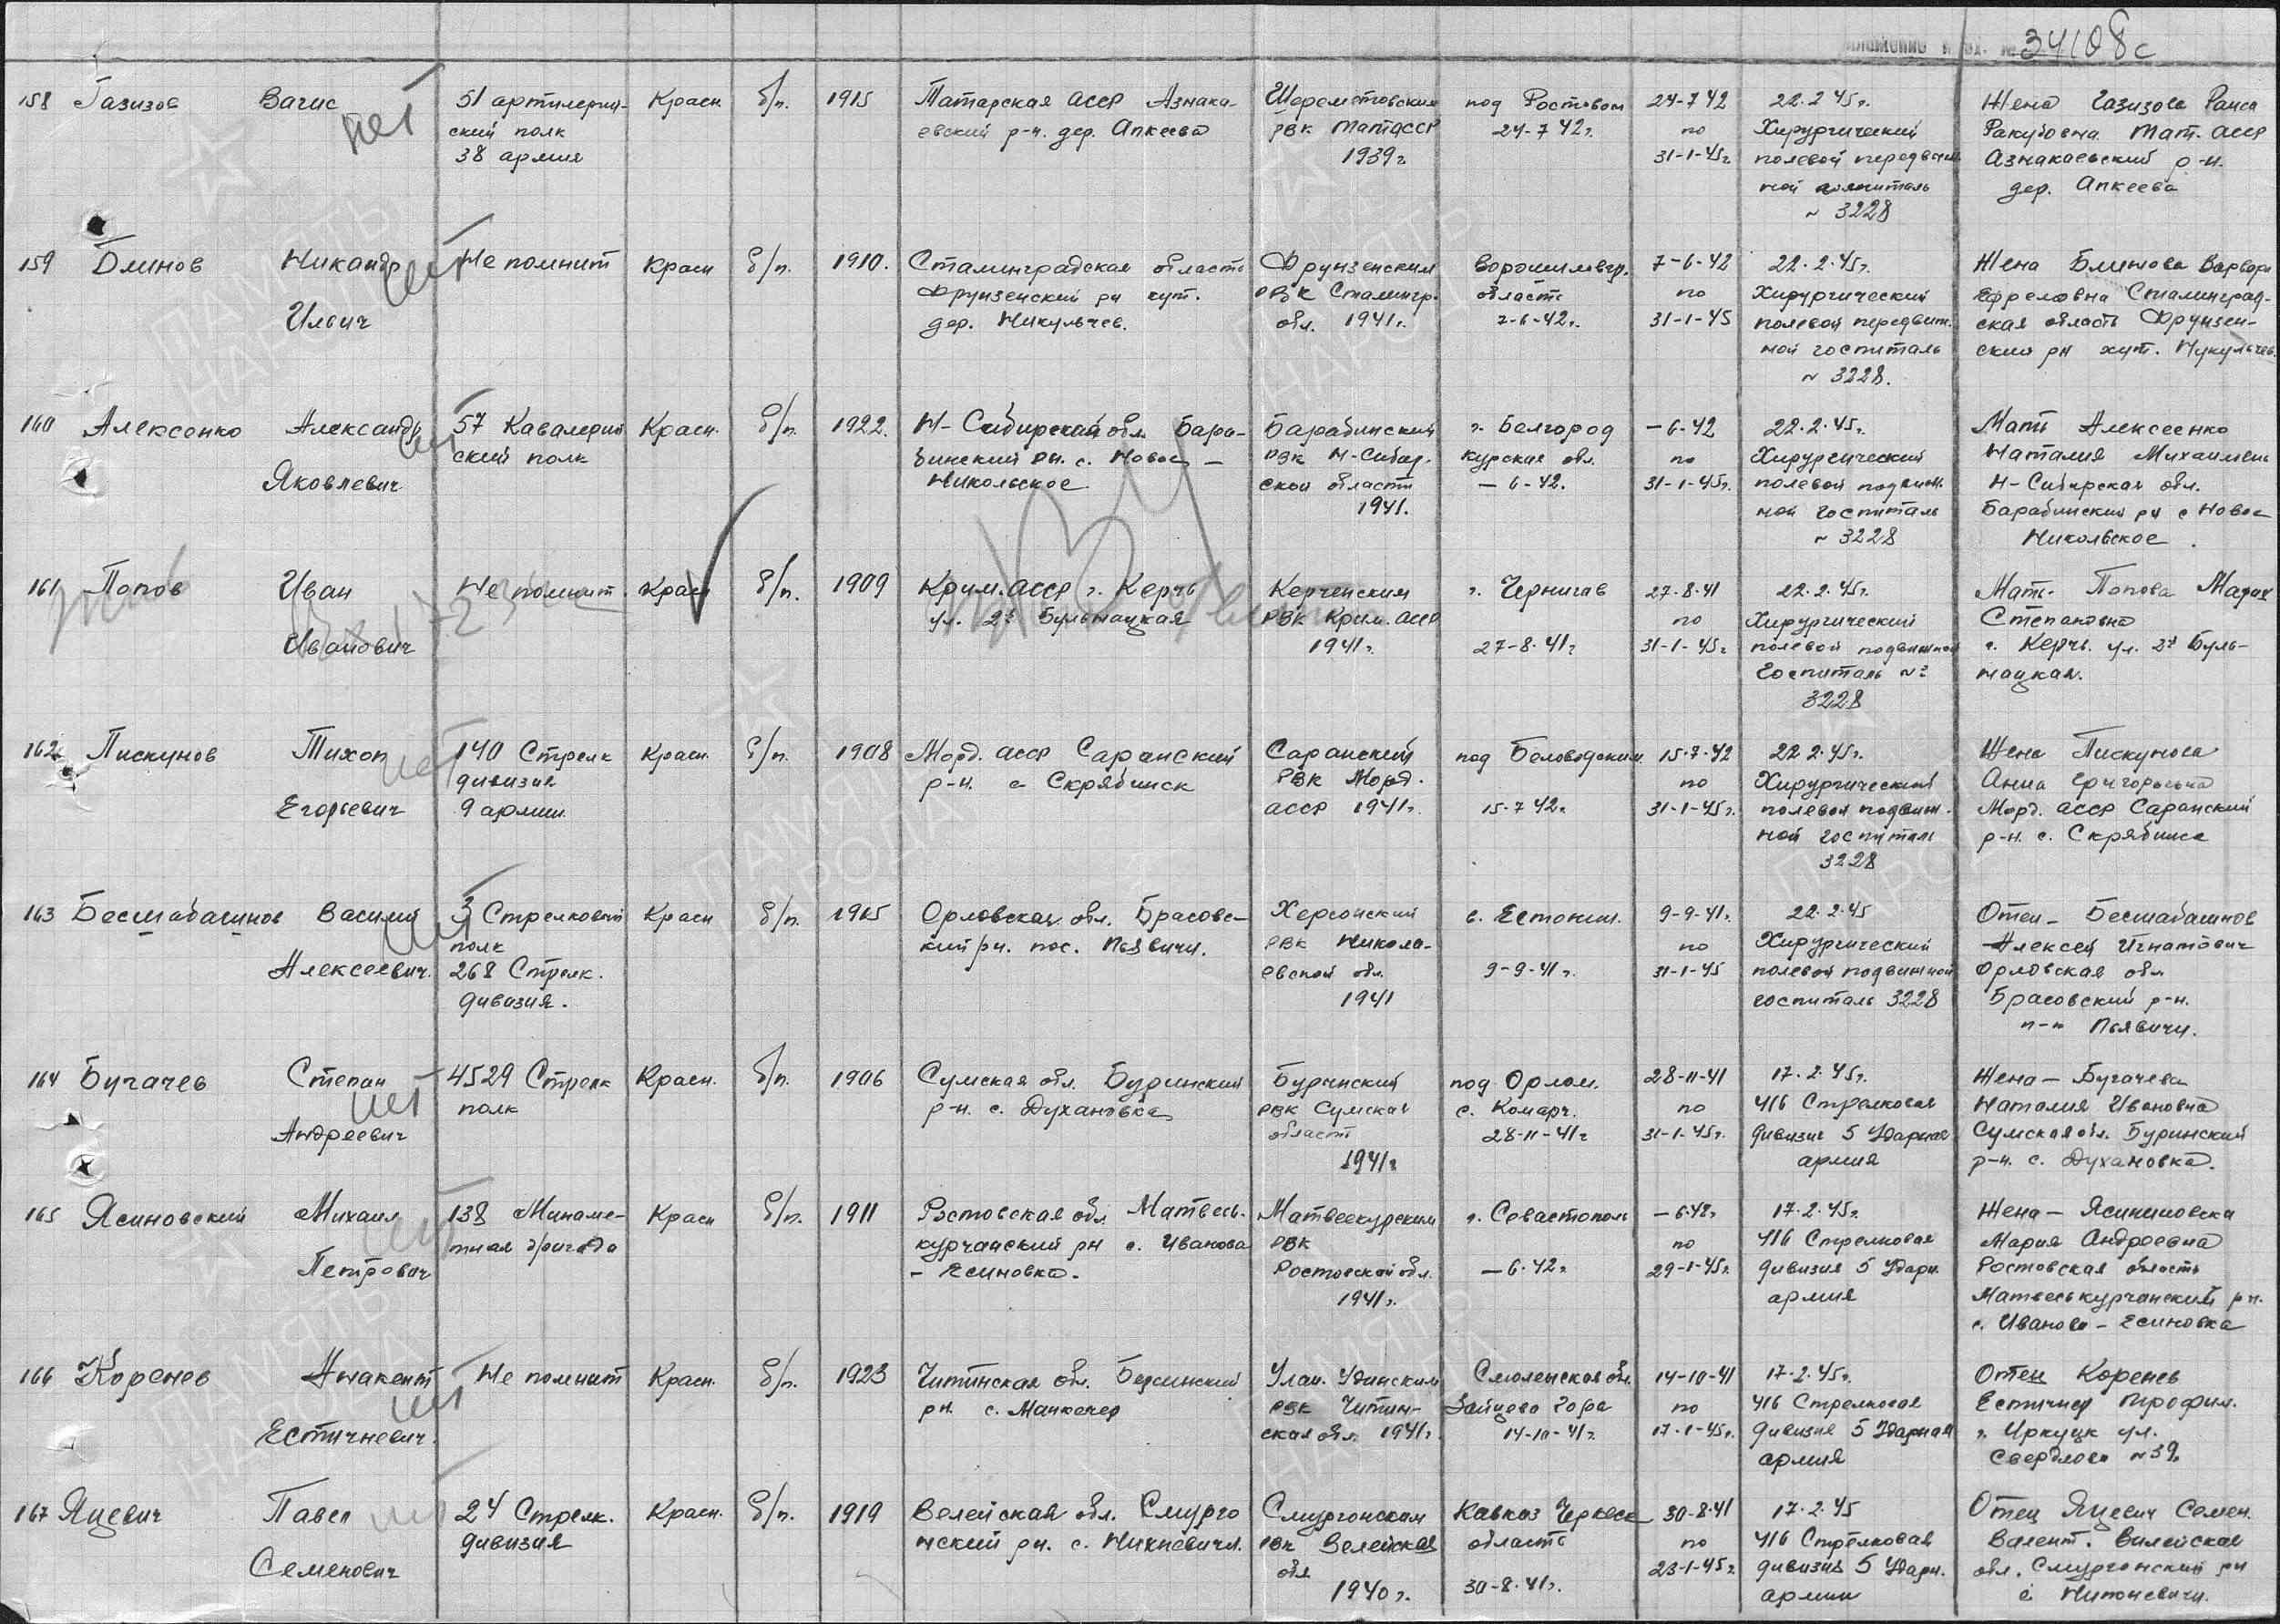 34108с
158 Газизов Вагис
нет
51 артилерий-
ский полк
38 армия
Красн
б/п.
1915
Татарская АССР Азнака-
евский р-н. дер. Апкеево
Шереметовский
РВК ТатАССР
1939г.
под Ростовом
24-7 42г.
24-7 42
по
31-1-45г.
22.2 45г.
Хирургический
полевой передвиж
ной госпиталь
~ 3228
Жена Газизова Раиса
Тат. АССР
Азнакаевский р-н.
дер. Апкеева
159 Блинов Никандр
Ильич
нет
Не помнит
Красн
б/п.
1910.
Сталинградская область
Фрунзенский рн хут.
дер. Никульчев.
Фрунзенский
РВК Сталингр.
обл. 1941г.
Ворошиловгр.
область
7-6-42г.
7-6-42
по
31-1-45
22.2.45г.
Хирургический
полевой передвиж.
ной госпиталь
~ 3228.
Жена Блинова Варвара
Ефремовна Сталинград-
ская область Фрунзен-
ский рн хут. Нукульчев.
160 Алексенко Александр
Яковлевич
нет
57 Кавалерий
ский полк
Красн.
б/п.
1922.
Н-Сибирской обл. Бара-
бинский рн. с. Новос —
Никольское
Барабинский
РВК Н-Сибир.
ской области
1941.
г. Белгород
Курская обл.
— 6-42.
— 6-42
по
31-1-45г.
22.2.45г.
Хирургический
полевой подвиж.
ной госпиталь
~ 3228
Мать Алексеенко
Наталия Михаиловн
Н-Сибирская обл.
Барабинский рн с Новос
Никольское.
161 Попов Иван
Иванович
Не помнит.
Красн
б/п.
1909
Крим. АССР г. Керчь
ул. 2я Бульнацкая
Керченским
РВК Крим. АССР
1941г.
г. Чернигов
27-8-41г
27-8-41
по
31-1-45г
22.2.45г.
Хирургический
полевой подвижной
госпиталь №
3228
Мать. Попова Мария
Степановна
г. Керчь. ул. 2я Буль-
нацкая.
162 Пискунов Тихон
Егорьевич
нет
140 Стрелк
дивизия
9 армии
Красн.
б/п.
1908
Морд. АССР Саранский
р-н. с Скрябинск
Саранский
РВК Морд.
АССР 1941г.
под Беловодским
15-7 42г
15-7-42
по
31-1-45г.
22 2.45г.
Хирургический
полевой подвиж.
ной госпиталь
3228
Жена Пискунова
Анна Григорьевна
Морд. АССР Саранский
р-н. с. Скрябинка
163 Бесшабашнов Василий
Алексеевич.
нет
3 Стрелковый
полк
268 Стрелк.
дивизия.
Красн
б/п.
1915
Орловская обл. Брасовс-
кий рн. пос. Пьявичи.
Херсонский
РВК Никола-
евской обл.
1941
в. Естонии.
9-9-41г.
9-9-41г.
по
31-1-45
22.2.45
Хирургический
полевой подвижной
госпиталь 3228
Отец - Бесшабашнов
Алексей Игнатович
Орловская обл
Брасовский р-н.
п-к Пьявичи.
164 Бугачев Степан
Андреевич
нет
4529 Стрелк
полк
Красн.
б/п.
1906
Сумская обл. Буринский
р-н. с. Духановка
Буринский
РВК Сумская
область
1941г
под Орлом.
с. Комарч.
28-11-41г
28-11-41
по
31-1-45г.
17.2.45г.
416 Стрелковая
дивизия 5 Ударная
армия
Жена — Бугачева
Наталия Ивановна
Сумская обл. Буринский
р-н. с. Духановка.
165 Ясиновский Михаил
Петрович
нет
138 Минаме-
тная бригада
Красн
б/п.
1911
Ростовская обл. Матвеев-
курчанский рн с. Иванова
- Есиновка.
Матвеекурским
РВК
Ростовской обл.
1941г.
г. Севастополь
— 6-42г
— 6.42г
по
29-1-45г.
17.2.45г.
416 Стрелковая
дивизия 5 Ударн.
армия
Жена — Ясининовска
Мария Андреевна
Ростовская область
Матвеевкурчанский рн.
с. Иванова - Есиновка
166 Коренев Инакент
Естичневич.
нет
Не помнит
Красн.
б/п.
1923
Читинская обл.
рн. с. Манкечер
Улан. Удинским
РВК Читин-
ская обл. 1941г.
Смоленская обл.
Зайцева Гора
14-10-41г.
14-10-41
по
17-1-45г.
17-2.45г.
416 Стрелковая
дивизия 5 Ударная
армия
Отец Коренев
Естичней Трофим.
г. Иркуцк ул.
Свердлова ~39.
167 Яцевич Павел
Семенович
нет
24 Стрелк.
дивизия
Красн.
б/п.
1919
Велейская обл. Смурго
нский рн. с.
Смургонским
РВК Велейская
обл
1940г.
Кавказ Черкеск
область
30-8-41г.
30-8-41
по
23-1-45г
17.2.45
416 Стрелковая
дивизия 5 Ударн.
армии
Отец Яцевич Семен.
Валент. Вилейская
обл. Смургонский рн
с
ПАМЯТЬ
НАРОДА